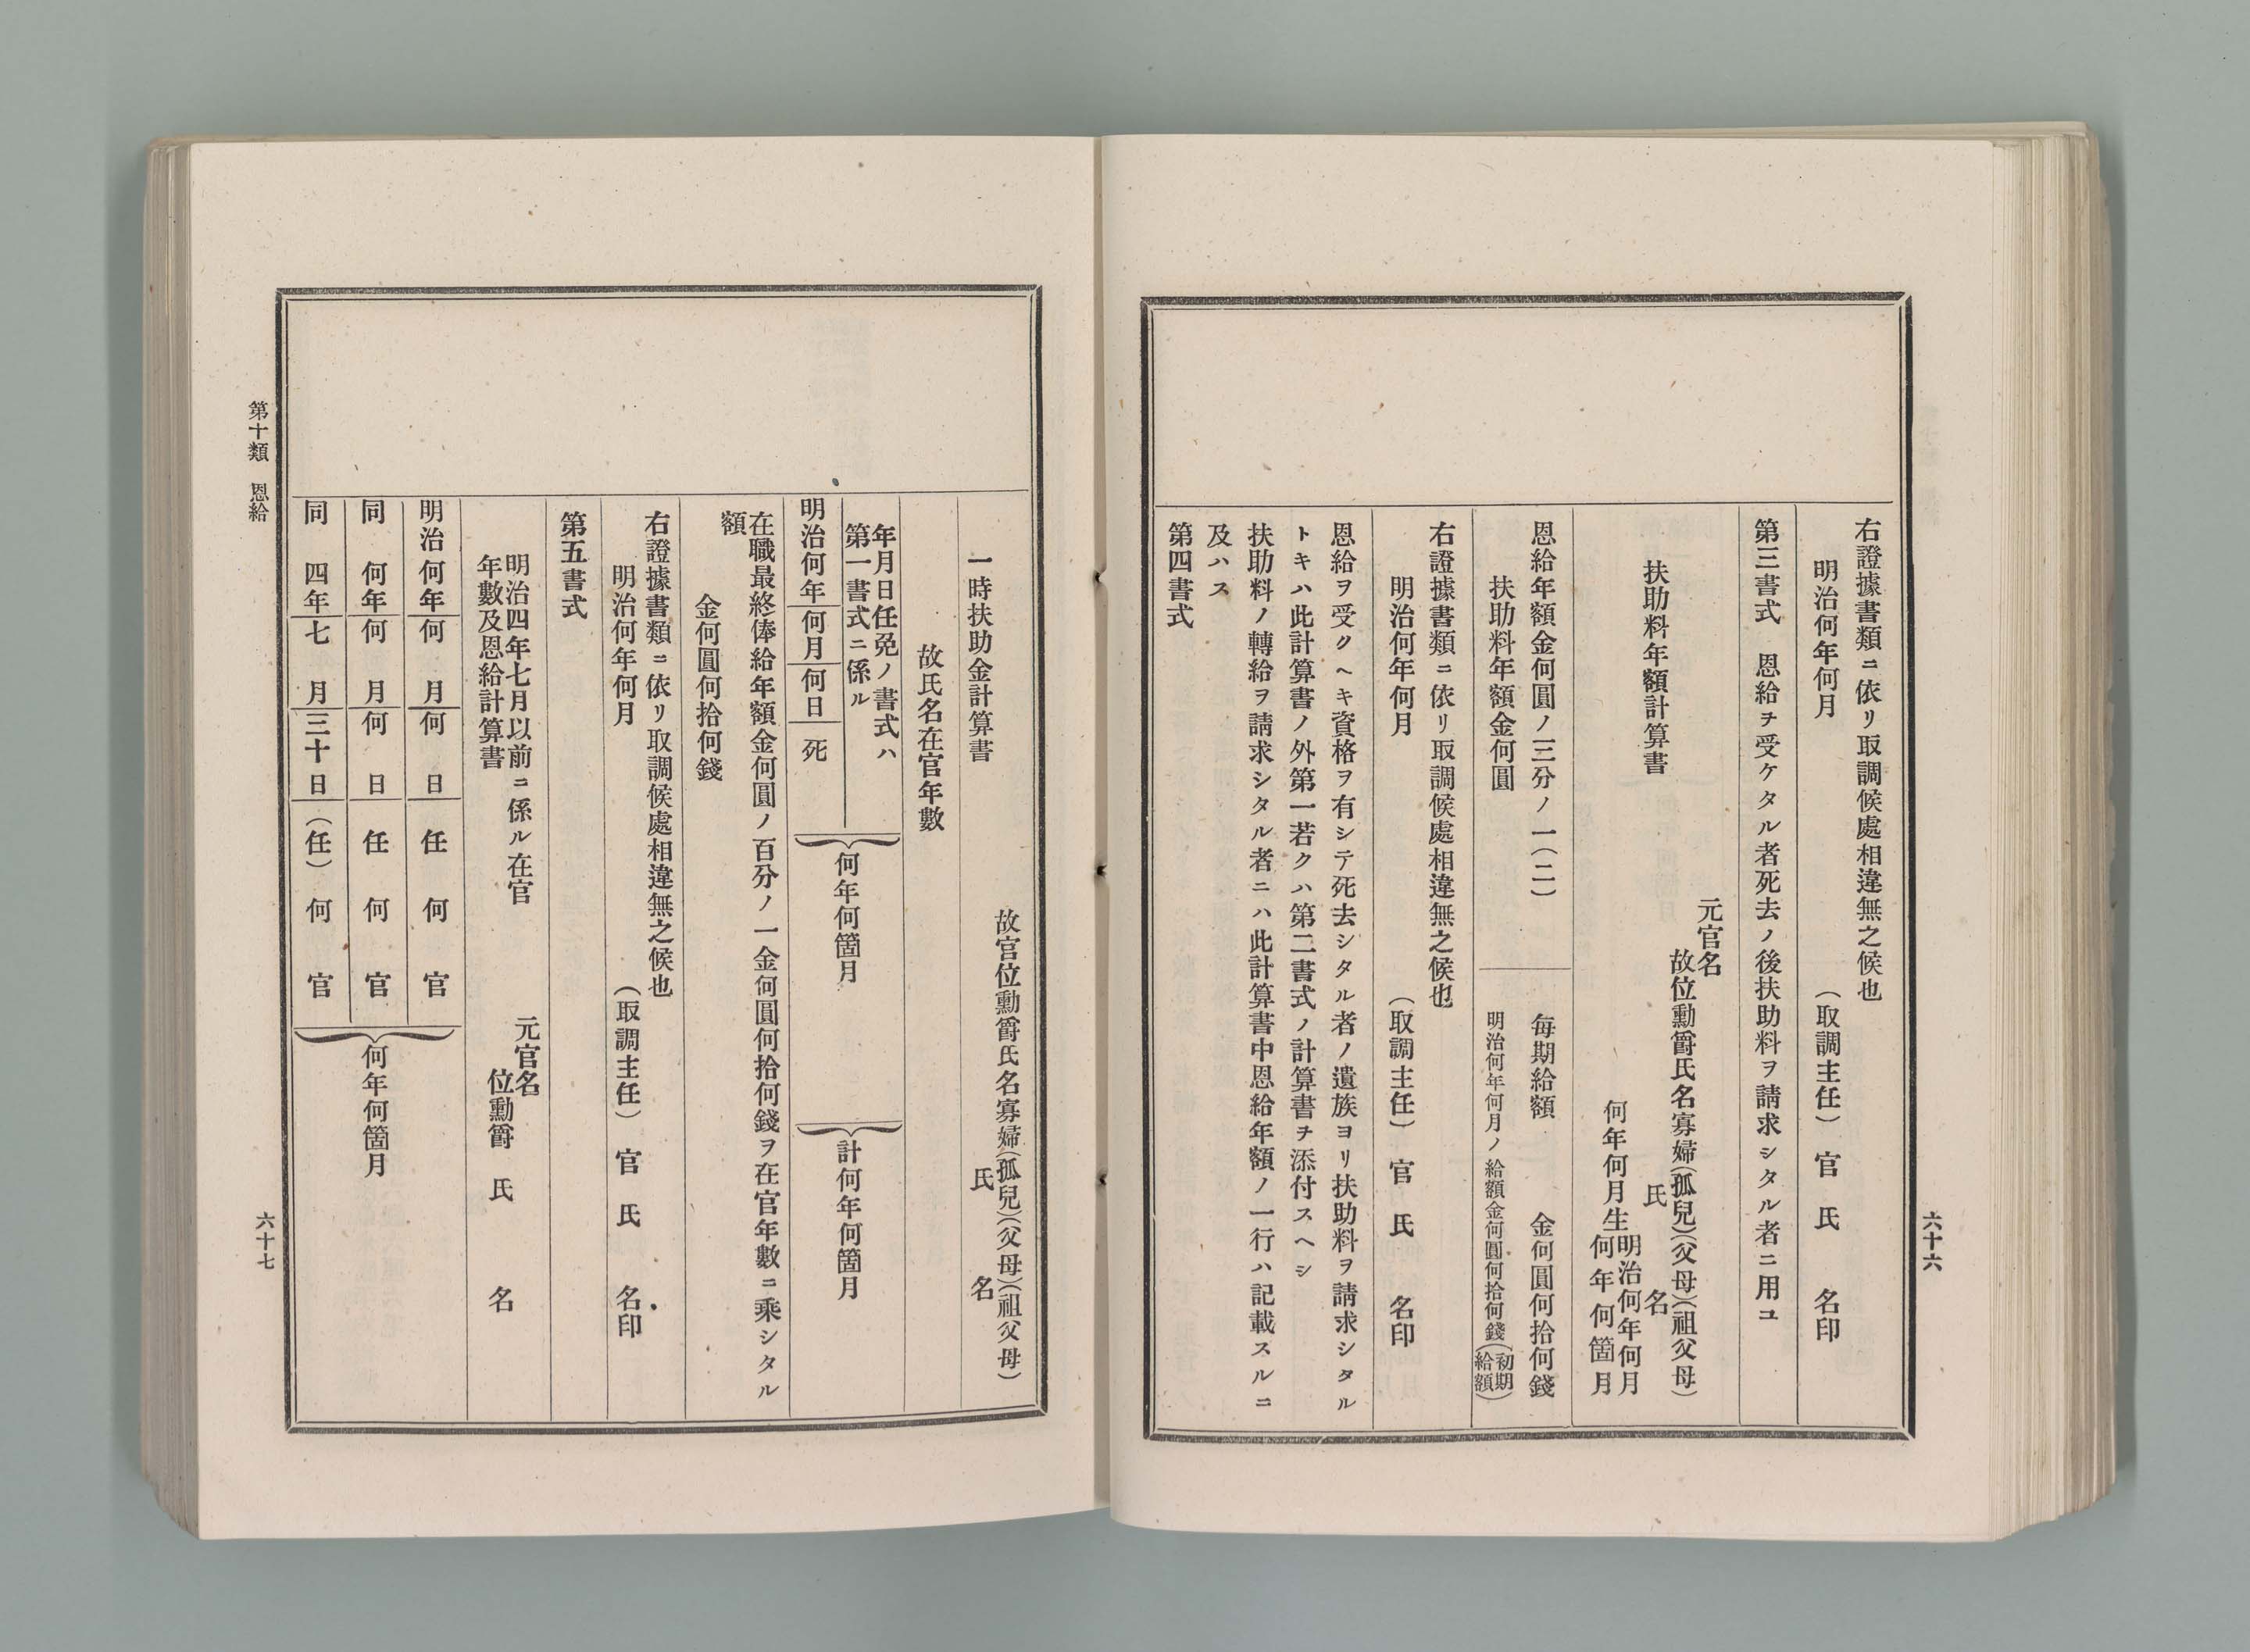 右證據書類ニ依リ取調候處相違無之候也
明治何年何月　（取調主任）官　氏　名印
第三書式　恩給ヲ受ケタル者死去ノ後扶助料ヲ請求シタル者ニ用ユ
元官名
故位勳爵氏名寡婦（孤兒）（父母）（祖父母）
扶助料年額計算書　氏　名
何年何月生
明治何年何月
何年何箇月
恩給年額金何圓ノ三分ノ一（二）　每期給額　金何圓何拾何錢
扶助料年額金何圓　明治何年何月ノ給額金何圓何拾何錢（初期給額）
右證據書類ニ依リ取調候處相違無之候也
明治何年何月　（取調主任）官　氏　名印
恩給ヲ受クヘキ資格ヲ有シテ死去シタル者ノ遺族ヨリ扶助料ヲ請求シタル
トキハ此計算書ノ外第一若クハ第二書式ノ計算書ヲ添付スヘシ
扶助料ノ轉給ヲ請求シタル者ニハ此計算書中恩給年額ノ一行ハ記載スルニ
及ハス
第四書式
六十六
故官位勳爵氏名寡婦（孤兒）（父母）（祖父母）
一時扶助金計算書　氏　名
故氏名在官年數
年月日任免ノ書式ハ
第一書式ニ係ル
明治何年何月何日　死
何年何箇月
計何年何箇月
在職最終俸給年額金何圓ノ百分ノ一金何圓何拾何錢ヲ在官年數ニ乘シタル
額
金何圓何拾何錢
右證據書類ニ依リ取調候處相違無之候也
明治何年何月　（取調主任）官　氏　名印
第五書式
明治四年七月以前ニ係ル在官
年數及恩給計算書
元官名
位勳爵　氏　名
明治何年何月何日　任何官
同　何年何月何日　任何官
同　四年七月三十日（任）何官
何年何箇月
第十類　恩給
六十七